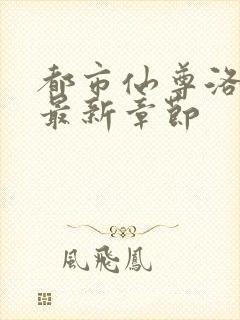 都市仙尊洛
最新章節
風飛鳳